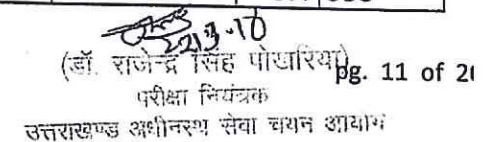 22/3/10
(डॉ. राजेन्द्र सिंह पोखरिया) pg. 11 of 20
परीक्षा नियंत्रक
उत्तराखण्ड अधीनस्थ सेवा चयन आयोग